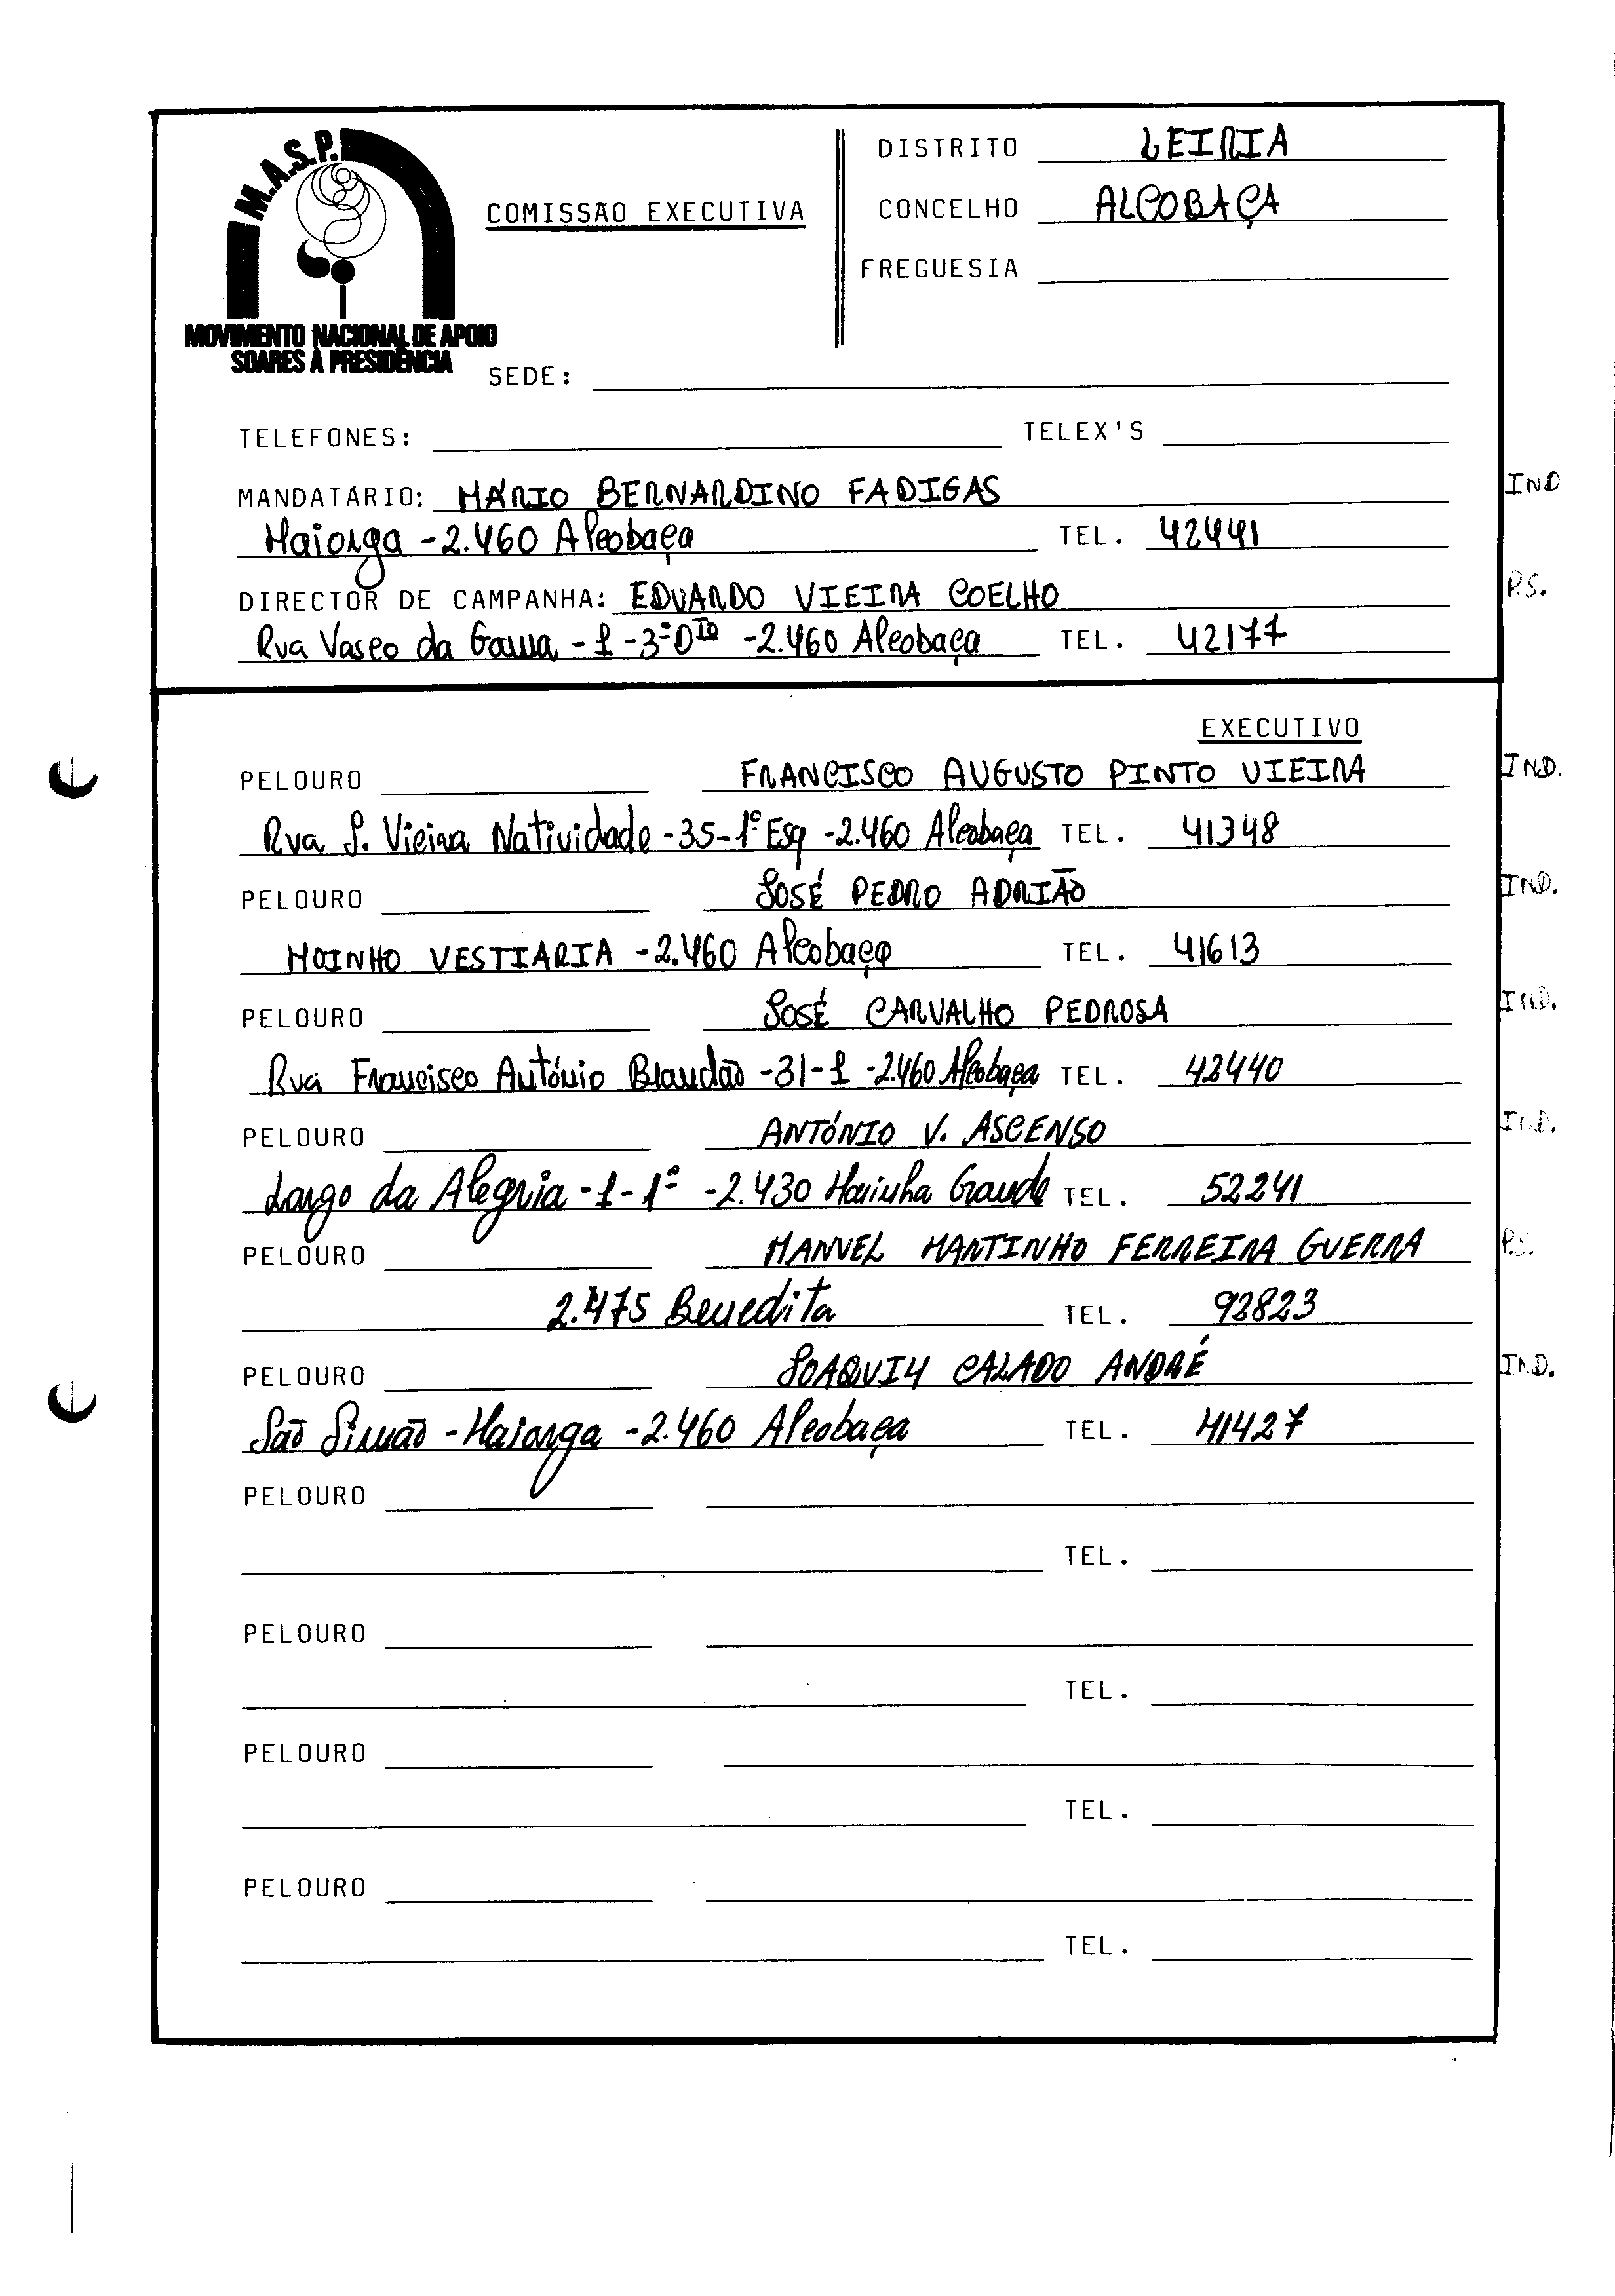 M.A.S.P.
MOVIMENTO NACIONAL DE APOIO
SOARES À PRESIDÊNCIA
COMISSÃO EXECUTIVA
DISTRITO LEIRIA
CONCELHO ALCOBAÇA
FREGUESIA
SEDE:
TELEFONES: TELEX'S
MANDATÁRIO: MÁRIO BERNARDINO FADIGAS IND
Maiorga - 2.460 Alcobaça TEL. 42441
DIRECTOR DE CAMPANHA: EDUARDO VIEIRA COELHO P.S.
Rua Vasco da Gama - 1 - 3º Dto - 2.460 Alcobaça TEL. 42177
EXECUTIVO
PELOURO FRANCISCO AUGUSTO PINTO VIEIRA IND.
Rua J. Vieira Natividade - 35 - 1º Esq - 2.460 Alcobaça TEL. 41348
PELOURO JOSÉ PEDRO ADRIÃO IND.
MOINHO VESTIARIA - 2.460 Alcobaça TEL. 41613
PELOURO JOSÉ CARVALHO PEDROSA IND.
Rua Francisco António Brandão - 31 - 1 - 2.460 Alcobaça TEL. 42440
PELOURO ANTÓNIO V. ASCENSO IND.
Largo da Alegria - 1 - 1º - 2.430 Marinha Grande TEL. 52241
PELOURO MANUEL MARTINHO FERREIRA GUERRA P.S.
2.475 Benedita TEL. 92823
PELOURO JOAQUIM CALADO ANDRÉ IND.
São Simão - Maiorga - 2.460 Alcobaça TEL. 41427
PELOURO
TEL.
PELOURO
TEL.
PELOURO
TEL.
PELOURO
TEL.